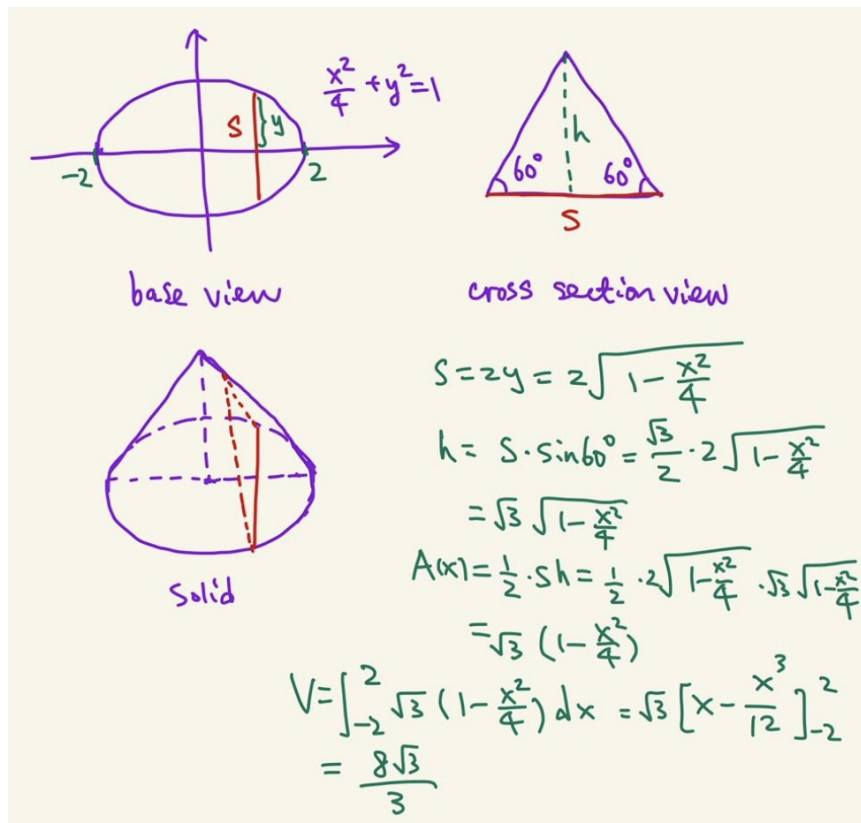 x²/4 + y² = 1
S } y
-2 2
base view
h
60° 60°
S
cross section view
Solid
S = 2y = 2√(1 - x²/4)
h = S · sin60° = √3/2 · 2√(1 - x²/4)
= √3 √(1 - x²/4)
A(x) = 1/2 · Sh = 1/2 · 2√(1 - x²/4) · √3 √(1 - x²/4)
= √3 (1 - x²/4)
V = ∫₋₂² √3 (1 - x²/4) dx = √3 [x - x³/12]₋₂²
= 8√3/3